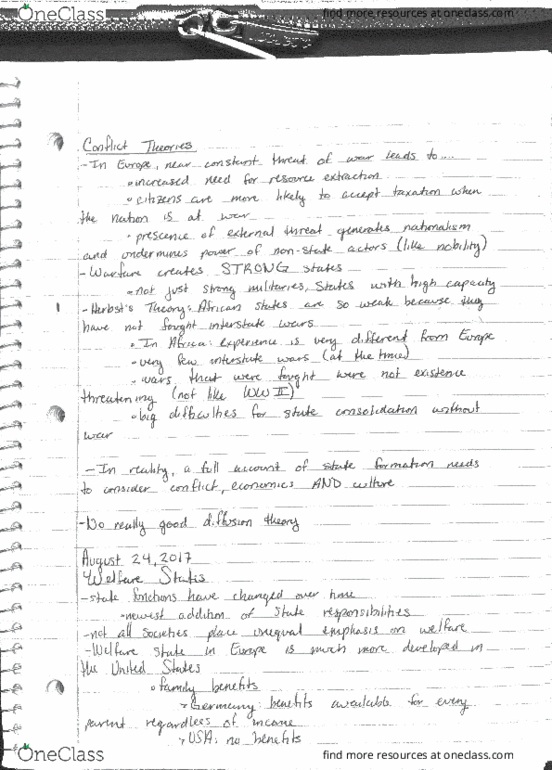 OneClass
find more resources at oneclass.com
Conflict Theories
-In Europe, near constant threat of war leads to...
•increased need for resource extraction
•citizens are more likely to accept taxation when
the nation is at war
•prescence of external threat generates nationalism
and undermines power of non-state actors (like nobility)
-Warfare creates STRONG states
•not just strong militaries, States with high capacity
-Herbst's Theory: African states are so weak because they
have not fought interstate wars
•In Africa: experience is very different from Europe
-very few interstate wars (at the time)
-wars that were fought were not existence
threatening (not like WW II)
•big difficulties for state consolidation without
war
-In reality, a full account of state formation needs
to consider conflict, economics AND culture
-No really good diffusion theory
August 24, 2017
Welfare States
-state functions have changed over time
-newest addition of State responsibilities
-not all societies place unequal emphasis on welfare
-Welfare state in Europe is much more developed in
the United States
•family benefits
Germany: benefits available for every
parent regardless of income
USA: no benefits
OneClass
find more resources at oneclass.com